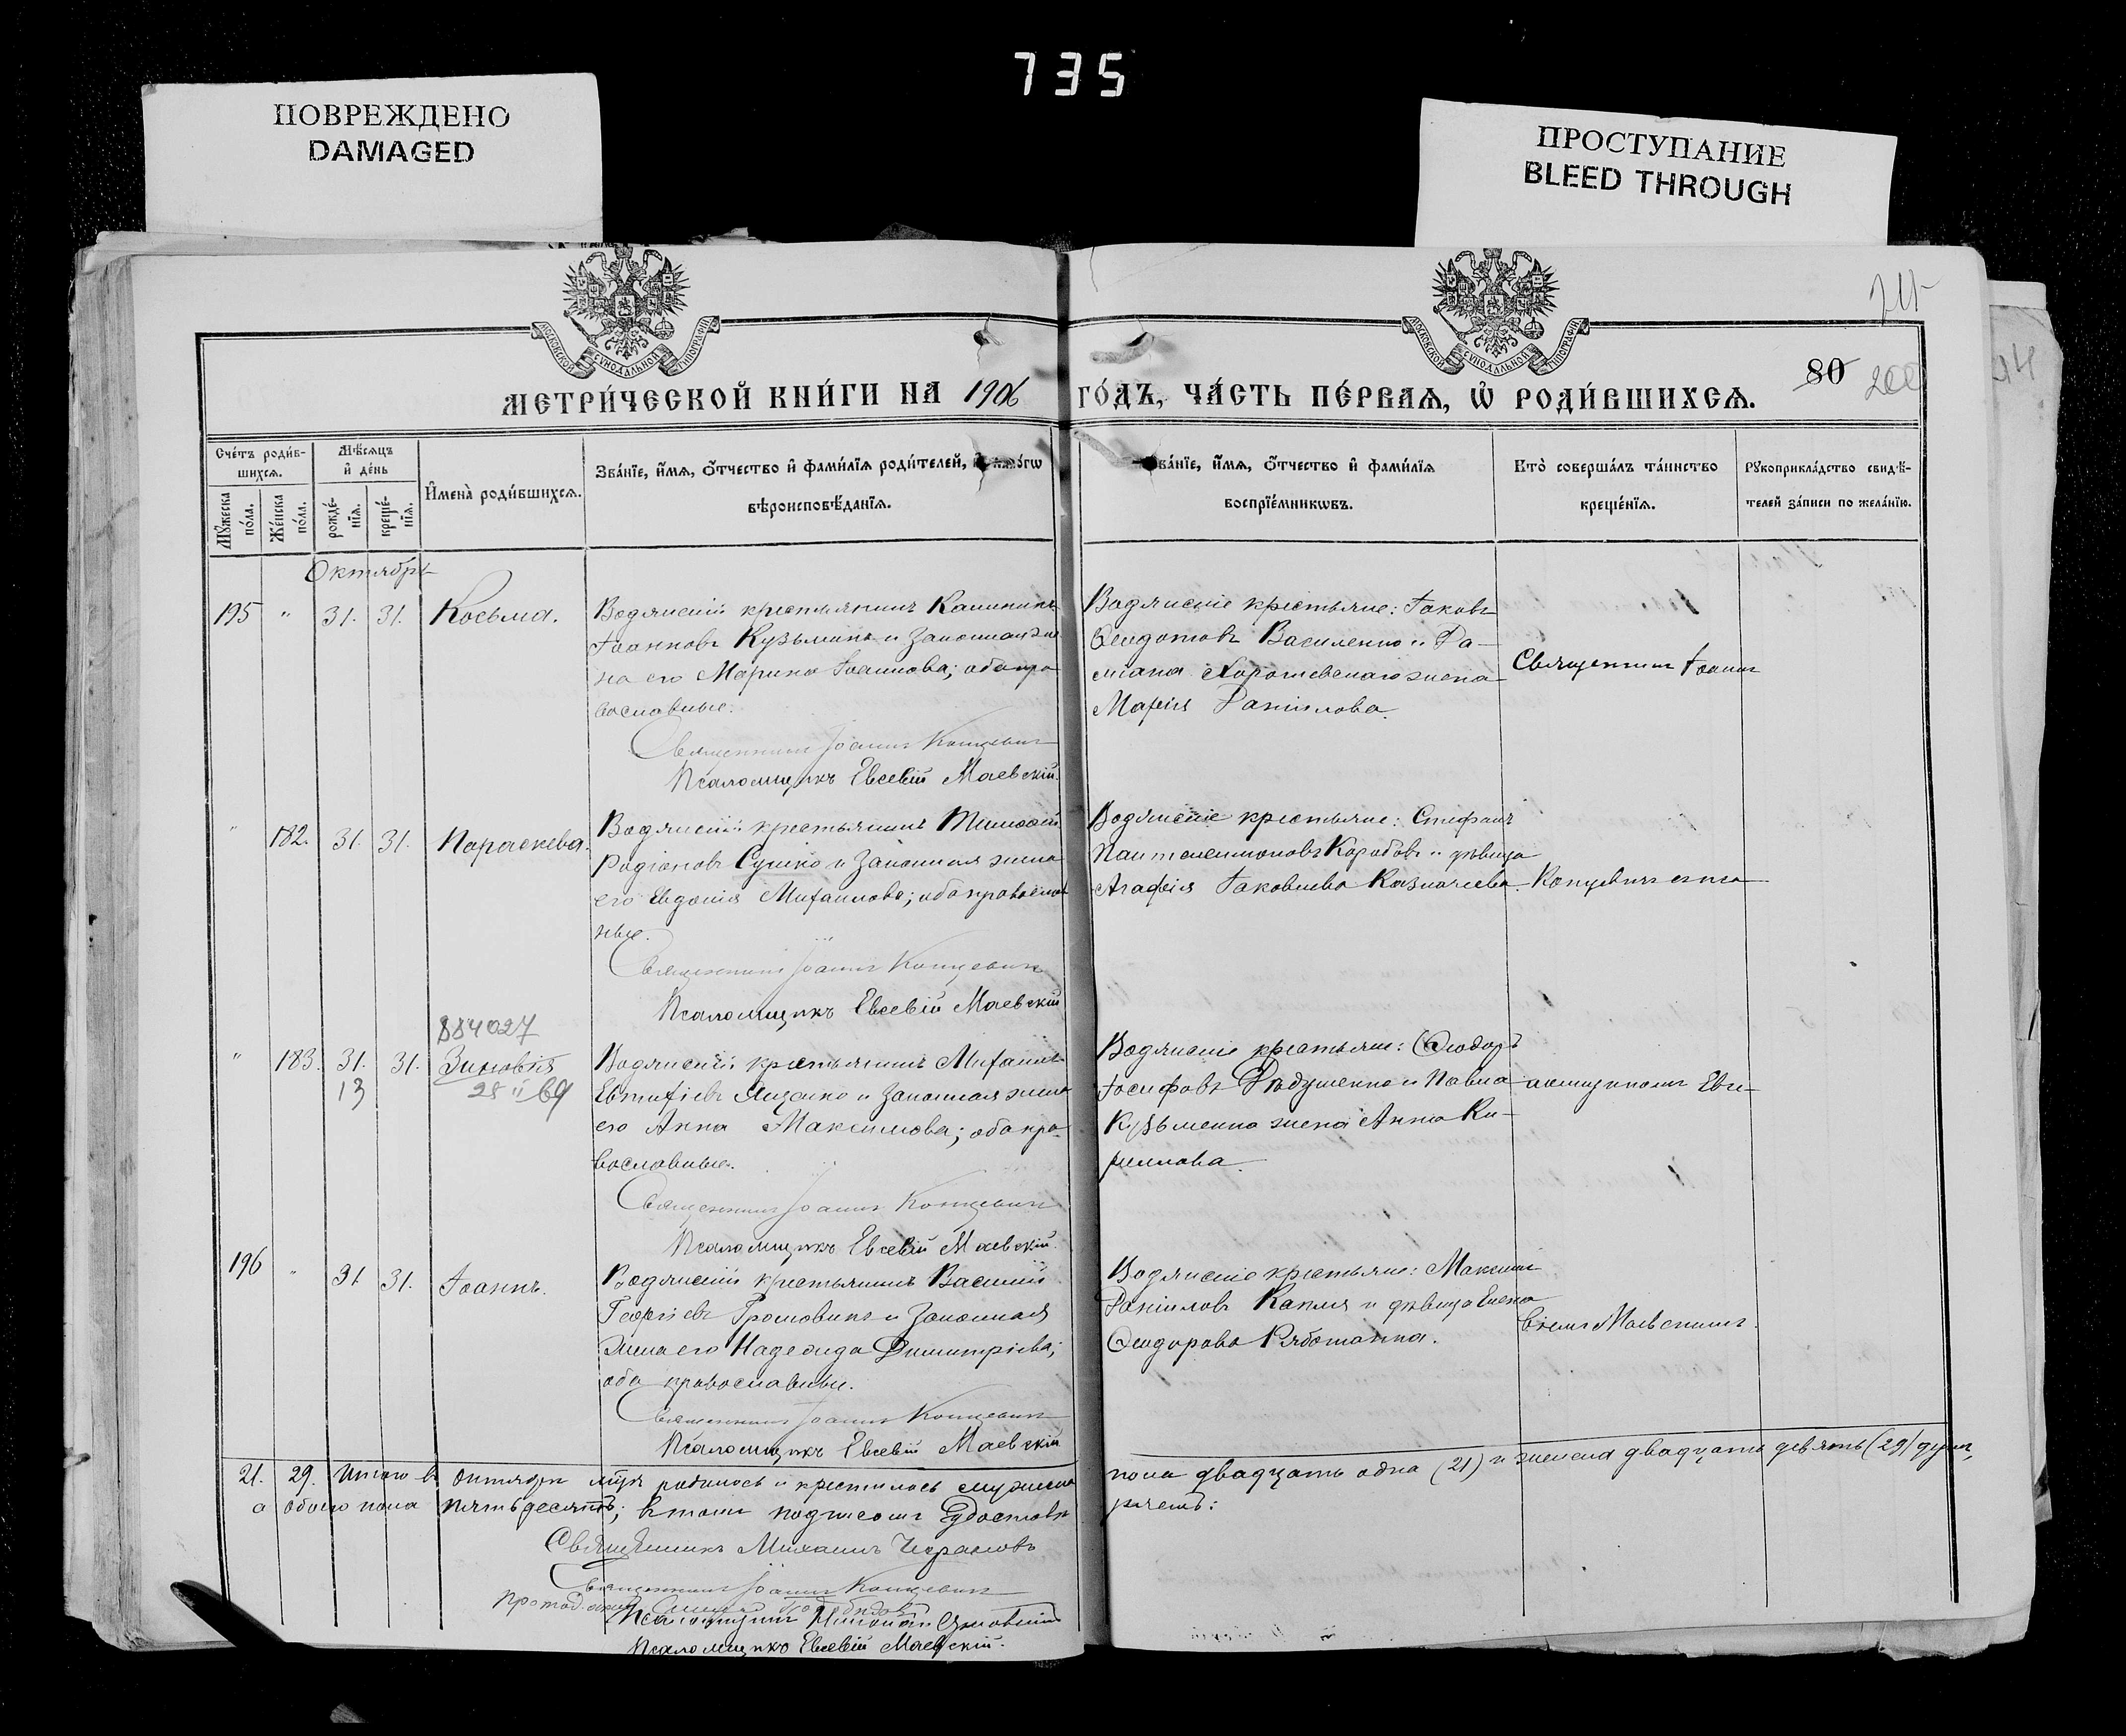 735
ПОВРЕЖДЕНО
DAMAGED
ПРОСТУПАНИЕ
BLEED THROUGH
МОСКОВСКОЙ СѴНОДАЛЬНОЙ ТИПОГРАФІИ
МОСКОВСКОЙ СѴНОДАЛЬНОЙ ТИПОГРАФІИ
80
200
МЕТРИ́ЧЕСКОЙ КНИ́ГИ НА 1906 ГО́ДЪ, ЧА́СТЬ ПЕ́РВАѦ, Ѡ҆ РОДИ́ВШИХСѦ.
Сче́тъ роди́в-
шихсѧ.
Мꙋ́жеска по́ла.
Же́нска по́ла.
Мѣ́сѧцъ
и҆ де́нь
рожде́-
нїѧ.
креще́-
нїѧ.
И҆мена̀ роди́вшихсѧ.
Зва́нїе, и҆́мѧ, ѻ҆́тчество и҆ фами́лїѧ роди́телей, и҆ како́гѡ
вѣроисповѣ́данїѧ.
Зва́нїе, и҆́мѧ, ѻ҆́тчество и҆ фами́лїѧ
воспрїе́мникѡвъ.
Кто̀ соверша́лъ та́инство
креще́нїѧ.
Рꙋкоприкла́дство свидѣ́-
телей за́писи по жела́нїю.
Октябрь
195 " 31. 31. Косьма.
Водянскій крестьянинъ Калинникъ
Іоанновъ Кузьминъ и законная же
на его Марина Іоаннова; оба пра
вославные.
Священникъ Іоаннъ Концевичъ
Псаломщикъ Евсевій Маевскій.
Водянскіе крестьяне: Іаковъ
Ѳеодотовъ Василенко и Да-
міана Хорошевскаго жена
Марія Даніилова.
Священникъ Іоаннъ
" 182. 31. 31. Параскева.
Водянскій крестьянинъ Тимоѳей
Родіоновъ Сушко и законная жена
его Евдокія Михаилова; оба православ
ные.
Священникъ Іоаннъ Концевичъ
Псаломщикъ Евсевій Маевскій
Водянскіе крестьяне: Стефанъ
Пантелеимоновъ Коробовъ и дѣвица
Агафія Іаковлева Казначеева.
Концевичъ съ пса-
884027
" 183. 31. 31. Зиновія
13
28 II 69
Водянскій крестьянинъ Михаилъ
Евтихіевъ Яценко и законная жена
его Анна Максимова; оба пра-
вославные.
Священникъ Іоаннъ Концевичъ
Псаломщикъ Евсевій Маевскій.
Водянскіе крестьяне: Ѳеодоръ
Іосифовъ Дѣдушенко и Павла
Кузьменко жена Анна Ки-
риллова.
ломщикомъ Евсе-
196 " 31 31. Іоаннъ.
Водянскій крестьянинъ Василій
Георгіевъ Громовикъ и законная
жена его Надежда Димитріева;
оба православные.
Священникъ Іоаннъ Концевичъ
Псаломщикъ Евсевій Маевскій
Водянскіе крестьяне: Максимъ
Даніиловъ Капля и дѣвица Елена
Ѳеодорова Рябошапка.
віемъ Маевскимъ.
21. 29. Итого въ октябрѣ м-цѣ родилось и крестилось мужска
пола двадцать одна (21) и женска двадцать девять (29) душъ,
а обоего пола пятьдесятъ; въ томъ подписомъ удостовѣ
ряемъ:
Священникъ Михаилъ
Священникъ Іоаннъ Концевичъ
Псаломщикъ
Псаломщикъ Евсевій Маевскій.